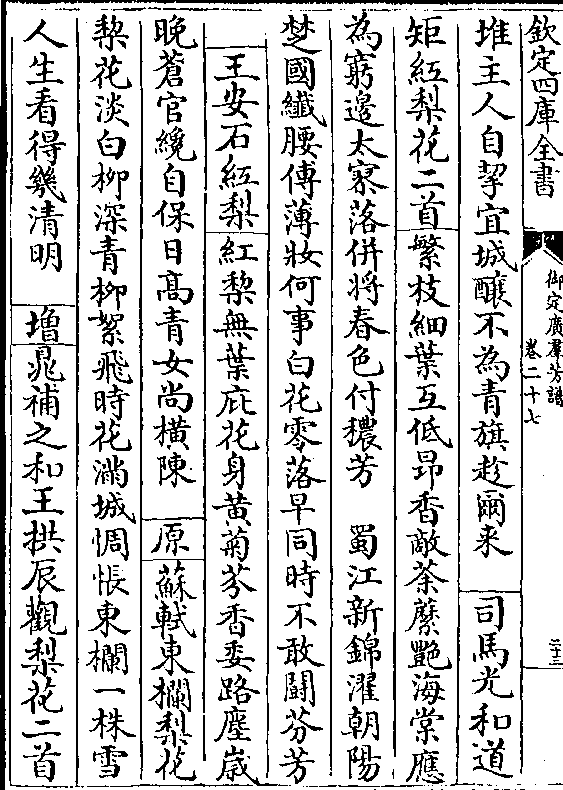 欽定四庫全書
御定廣羣芳譜
卷二十七
二十三
堆主人自挈宜城釀不為青旗趁爾来　司馬光和道
矩紅梨花二首繁枝細葉互低昂香敵荼䕷艷海棠應
為窮邊太寂落併將春色付穠芳　蜀江新錦濯朝陽
楚國纖腰傅薄妝何事白花零落早同時不敢鬭芬芳
王安石紅梨紅梨無葉庇花身黄菊芬香委路塵嵗
晚蒼官纔自保日髙青女尚橫陳　原蘇軾東欄梨花
梨花淡白柳深青柳絮飛時花滿城惆悵東欄一株雪
人生看得幾清明　增晁補之和王拱辰觀梨花二首